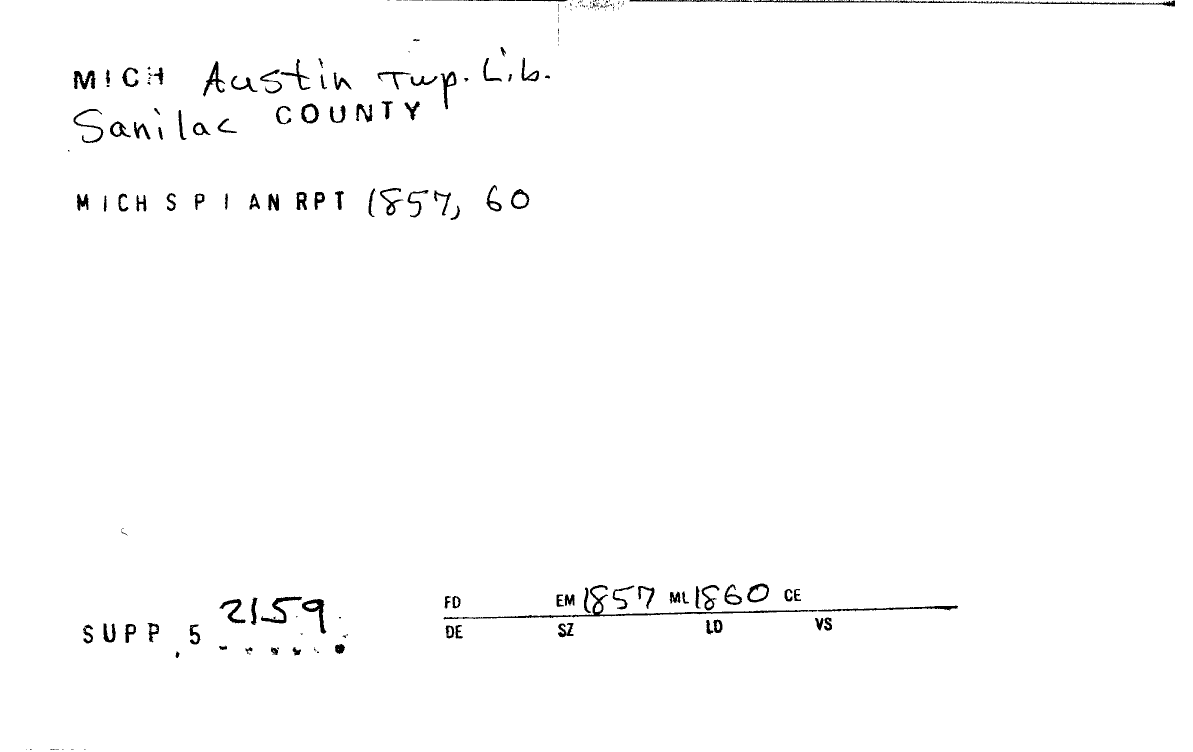 MICH Austin Twp. Lib.
Sanilac COUNTY
MICH S P I AN RPT 1857, 60
SUPP. 5 2159
FD EM 1857 ML 1860 CE
DE SZ LD VS